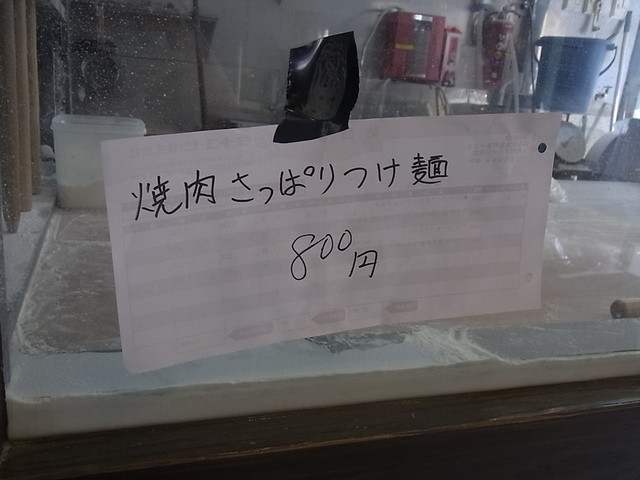 焼肉さっぱりつけ麺
800円